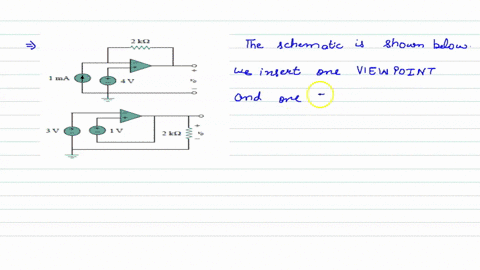 ⇒
2 kΩ
The schematic is shown below.
1 mA
4 V
we insert one VIEWPOINT
and one
3 V
1 V
2 kΩ